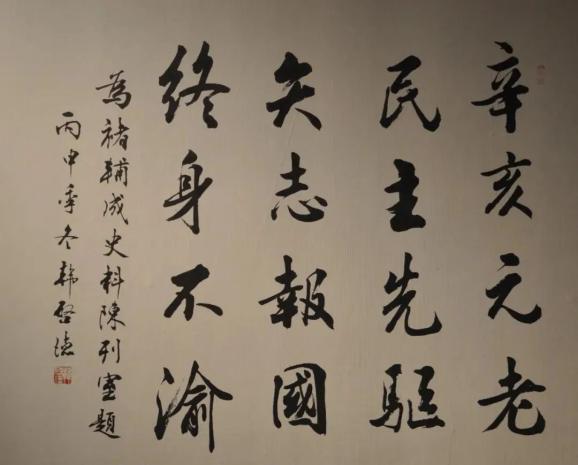 辛亥元老
民主先驅
矢志報國
終身不渝
為褚輔成史料陳列室題
丙申季冬韓啓德